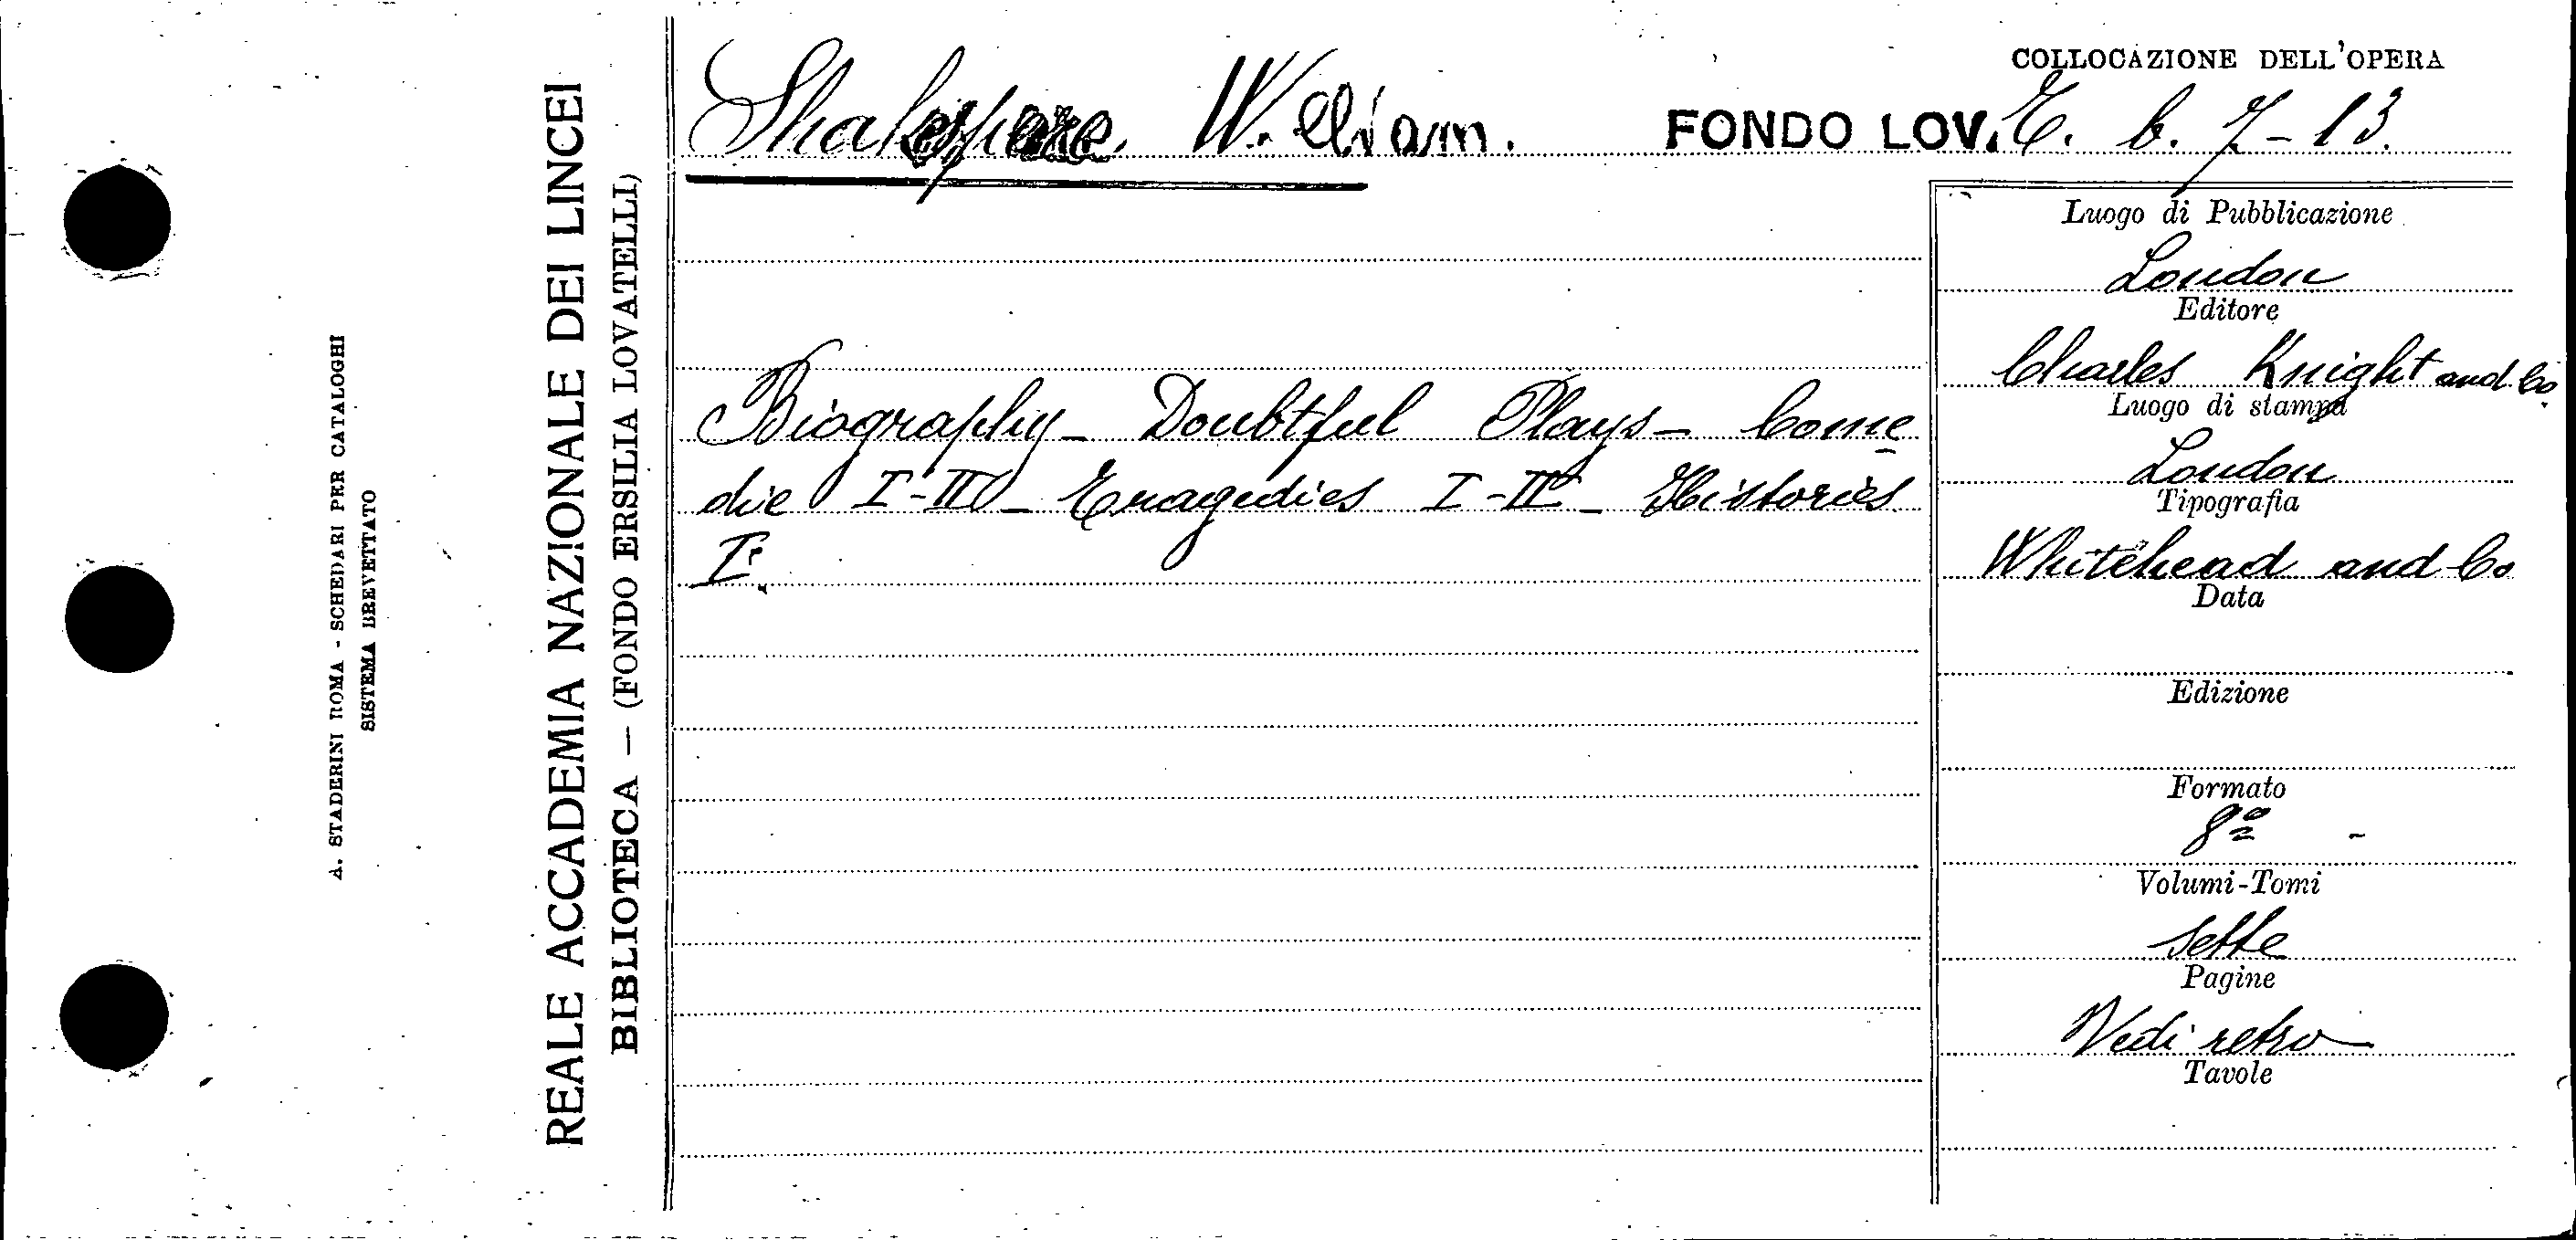 A. STADERINI ROMA - SCHEDARI PER CATALOGHI
SISTEMA BREVETTATO
REALE ACCADEMIA NAZIONALE DEI LINCEI
BIBLIOTECA — (FONDO ERSILIA LOVATELLI)
Shakespeare William.
Biography - Doubtful Plays - Come
die I-II - Tragedies I-II - Histories
I.
COLLOCAZIONE DELL'OPERA
FONDO LOV. E. b. 7-13.
Luogo di Pubblicazione
London
Editore
Charles Knight and Co
Luogo di stampa
London
Tipografia
Whitehead and Co
Data
Edizione
Formato
8º
Volumi-Tomi
Sette
Pagine
Vedi retro
Tavole